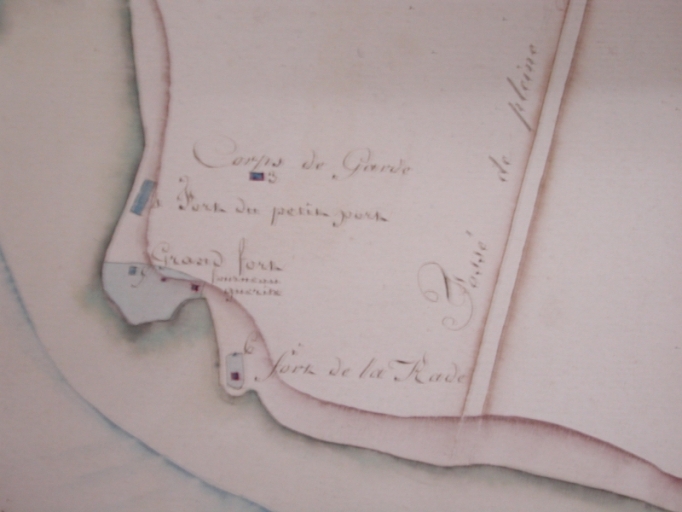 Corps de Garde
3
2
Fort du petit port
Grand fort
5
fourneau
guerite
6
fort de la Rade
Fossé de pleine